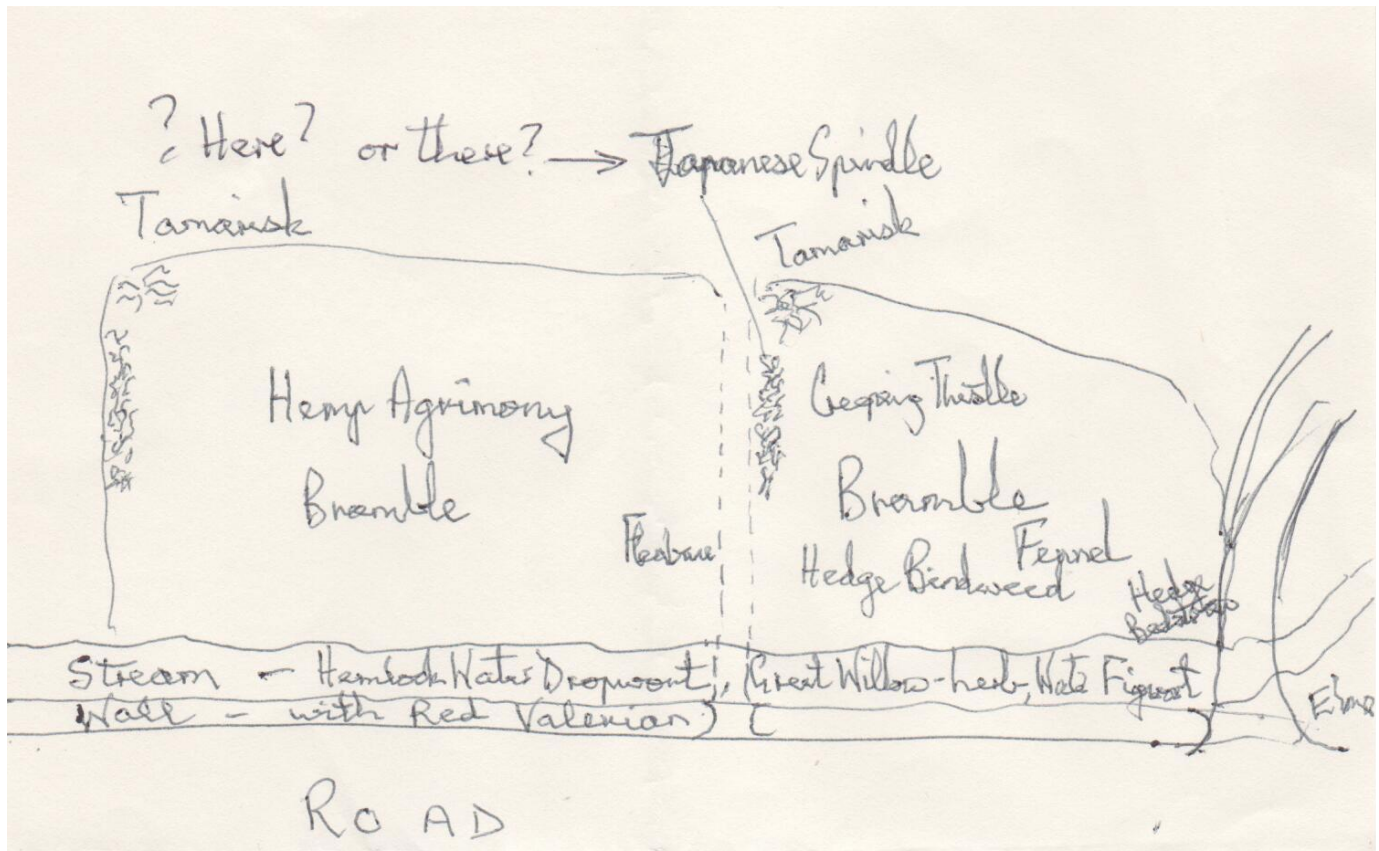 ? Here? or there? → Japanese Spindle
Tamarisk
Tamarisk
Hemp Agrimony
Bramble
Fleabane
Creeping Thistle
Bramble
Fennel
Hedge Bindweed
Hedge
Stream - Hemlock Water Dropwort, Great Willow-herb, Water Figwort
Wall - with Red Valerian
Elms
ROAD